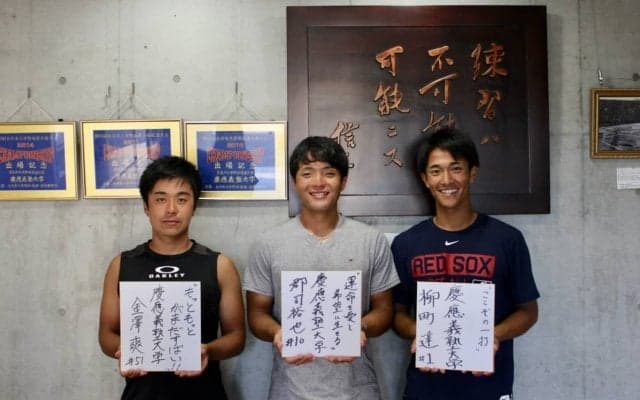 練習ハ
不可能
可能ニス
信
CHAMPIONSHIP
出場記念
慶應義塾大学
CHAMPIONSHIP
出場記念
慶應義塾大学
CHAMPIONSHIP
出場記念
慶應義塾大学
OAKLEY
RED SOX
"もっともっと
がまだすばい!!"
慶應義塾大学
金澤 爽 #51
"運命を愛し
希望に生きる"
慶應義塾大学
郡司裕也 #10
"こその一打"
慶應義塾大学
柳町 達 #1